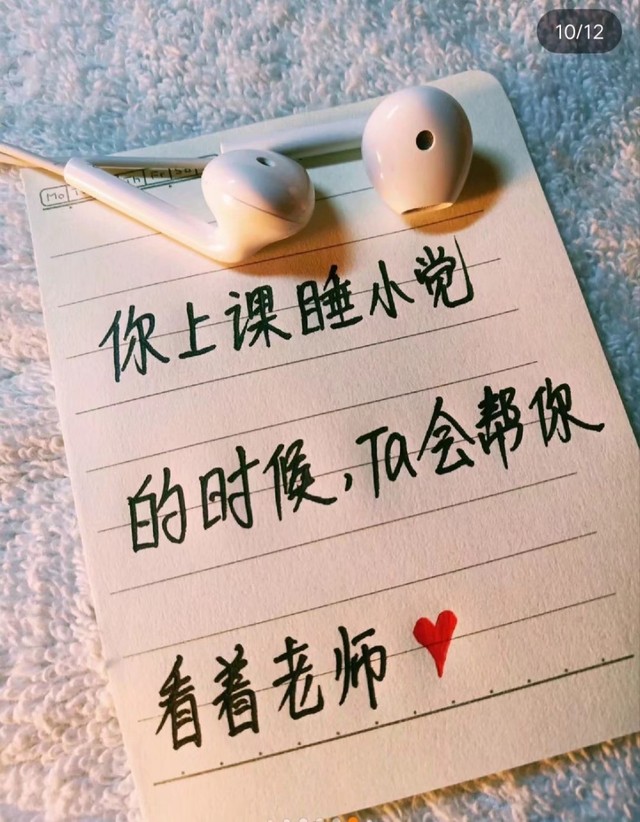 10/12
Mo
你上课睡小觉
的时候，Ta会帮你
看着老师